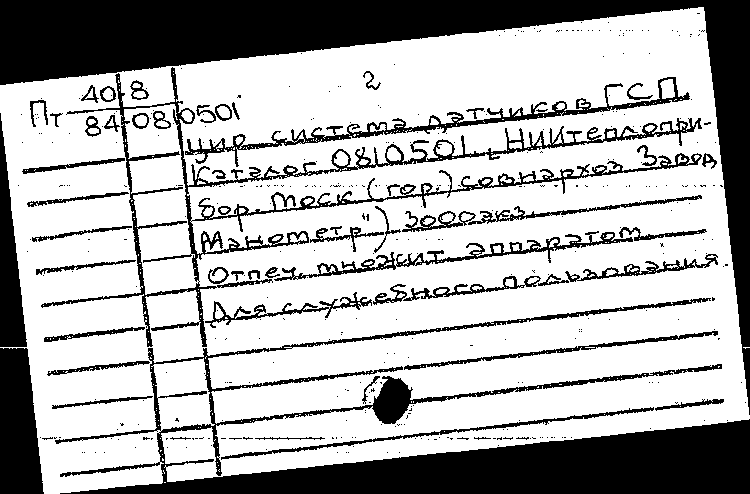 2
Пт 40-8
84-08 0501
цир система датчиков ГСП.
Каталог 0810501. НИИтеплопри-
бор. Моск (гор.) совнархоз Завод
Манометр") 3000экз.
Отпеч. множит. аппаратом.
Для служебного пользования.